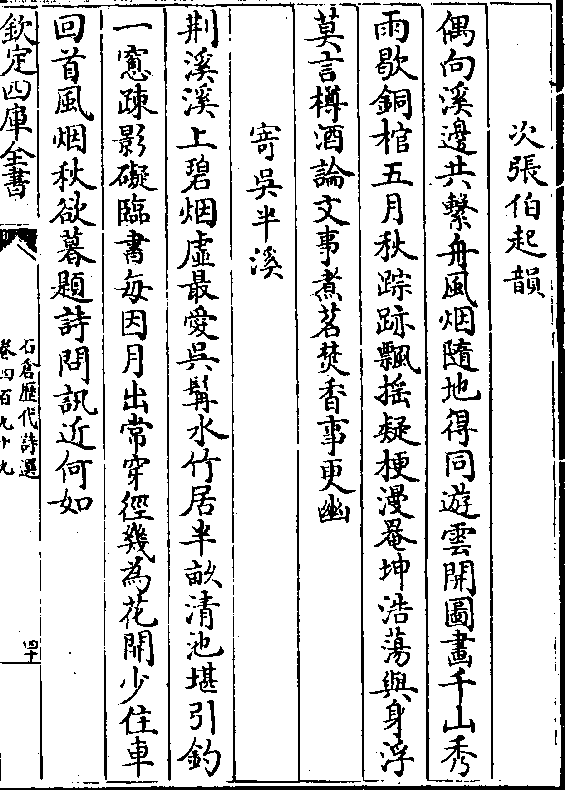 次張伯起韻
偶向溪邊共繫舟風烟隨地得同遊雲開圖畫千山秀
雨歇銅棺五月秋踪跡飄摇疑梗漫乾坤浩蕩與身浮
莫言樽酒論文事煮茗焚香事更幽
寄吳半溪
荆溪溪上碧烟虛最愛吳髯水竹居半畝清池堪引釣
一窻踈影礙臨書每因月出常穿徑幾為花開少住車
回首風烟秋欲暮題詩問訊近何如
欽定四庫全書
石倉歷代詩選
卷四百九十九
四十